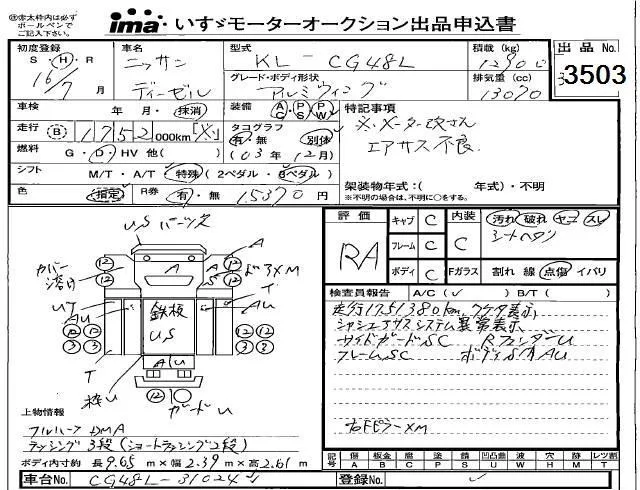 ㊟赤太枠内は必ず
ボールペンで
ご記入下さい。
ima・いすゞモーターオークション出品申込書
初度登録 車名 型式 積載(kg) 出品No.
S・H・R ニッサン KL-CG48L 12900
16/7 月 ディーゼル グレード・ボディ形状 アルミウィング 排気量(cc) 13070
3503
車検 年 月・抹消 装備 AC・PS・PW 特記事項
走行 B 1752 000km タコグラフ 有・無 別体 ※メーター改ざん
燃料 G・D・HV 他( ) (03年12月) エアサス不良
シフト M/T・A/T 特殊(2ペダル・3ペダル) 架装物年式:( 年式)・不明
色 指定 R券 有・無 15370円 ※不明の場合は、不明に○をする。
USバンパス
評価 キャブ C 内装 汚れ 破れ ヤニ スレ
RA フレーム C C シートヘタリ
ボディ C Fガラス 割れ 線 点傷 イパリ
カバー溶け
鉄板
US
検査員報告 A/C(✓) B/T( )
走行1751380km, ワケタ表示
シャシエアサスシステム異常表示
サイドガードSC RフェンダーU
フレームSC ボディSMAU
右FピラーXM
枠U
ガードU
上物情報
フルハーフ DMA
ラッシング3段(ショートラッシング2段)
ボディ内寸約 長9.65m×幅2.39m×高2.61m
記号 傷A 板金B 腐C 塗P 錆S 凹凸曲U 波W 穴H 跡M レツ割T
車台No. CG48L-31024 登録No.